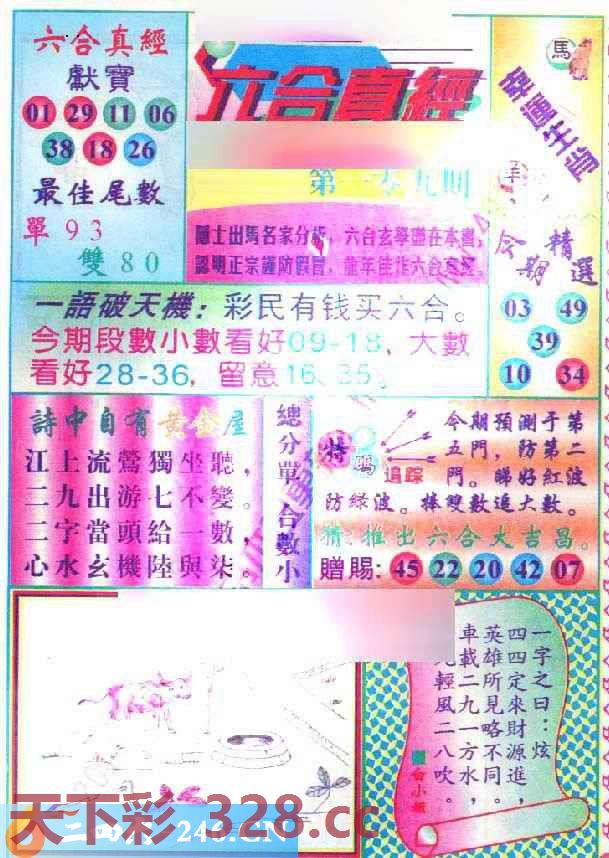 六合真經
獻寶
01 29 11 06
38 18 26
最佳尾數
單 93
雙 80
六合真經
隱士出馬名家分析，六合玄學盡在本書，
認明正宗謹防假冒，龍年佳作六合真經。
馬
幸運生肖
羊
今期精選
03 49
39
10 34
一語破天機：彩民有钱买六合。
今期段數小數看好09-18，大數
看好28-36，留意16、35。
詩中自有黃金屋
江上流鶯獨坐聽，
二九出游七不變。
二字當頭給一數，
心水玄機陸與柒。
總分單 合數小
特碼
追踪
今期預測于第
五門，防第二
門。睇好紅波
防綠波。捧雙數追大數。
猜：推出六合大吉昌。
贈賜：45 22 20 42 07
一字之曰：炫
四四定來財源進，
英雄所見略不同。
車載二九一方水，
輕風二八吹。
天下彩 328.cc
246.CN